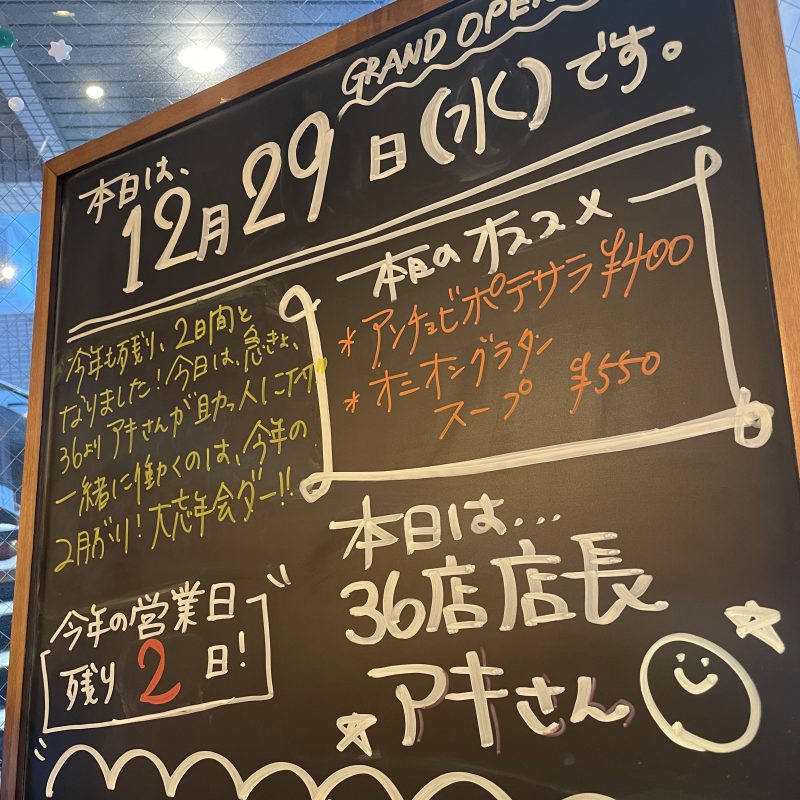 GRAND OPEN
本日は、
12月29日(水)です。
本日のオススメ
*アンチョビポテサラ ¥400
*オニオングラタン
スープ ¥550
今年も残り、2日間と
なりました!今日は、急きょ、
36よりアキさんが助っ人に
一緒に働くのは、今年の
2月ぶり!大忘年会ダー!!
本日は...
36店店長
アキさん
今年の営業日
残り2日!